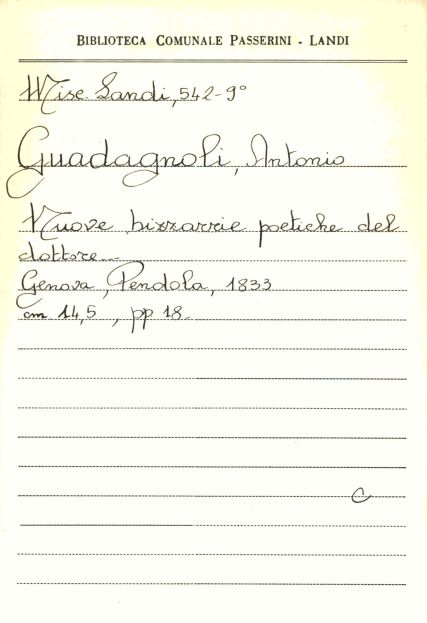 BIBLIOTECA COMUNALE PASSERINI - LANDI
Misc. Landi, 542-9°
Guadagnoli, Antonio
Nuove bizzarrie poetiche del
dottore...
Genova, Pendola, 1833
cm 14,5, pp 18.
C